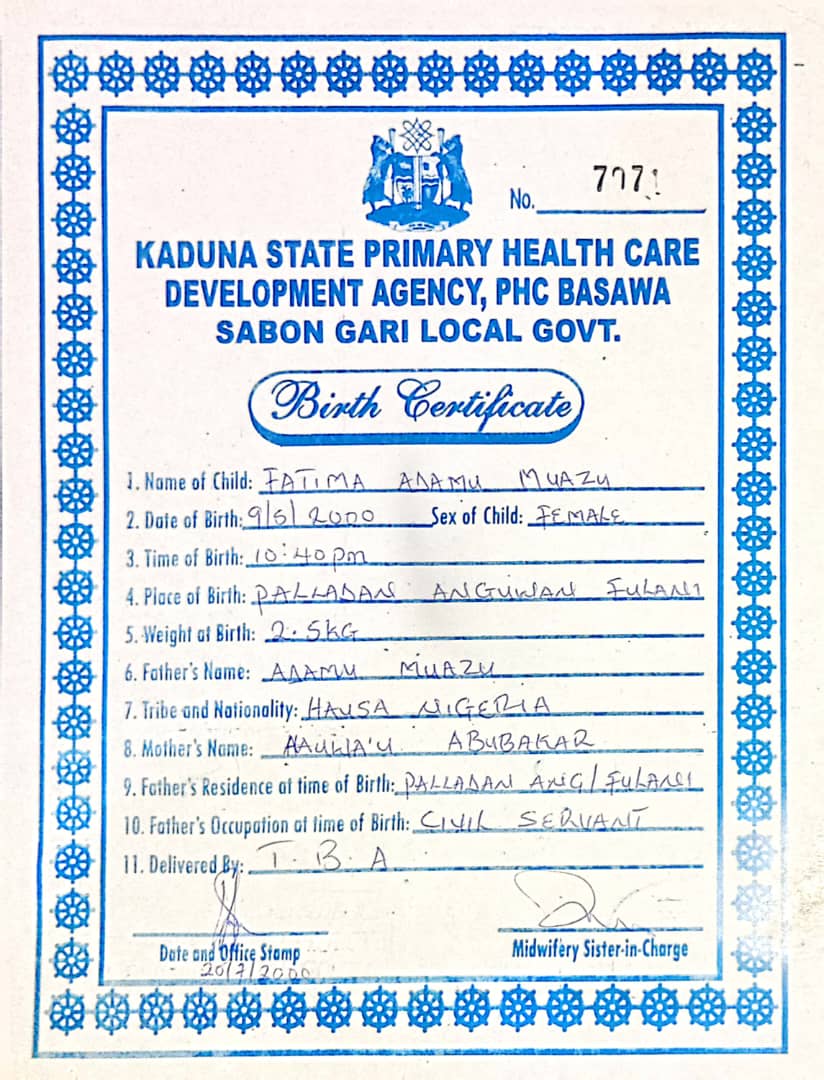 No. 7071
KADUNA STATE PRIMARY HEALTH CARE
DEVELOPMENT AGENCY, PHC BASAWA
SABON GARI LOCAL GOVT.
Birth Certificate
1. Name of Child: FATIMA ADAMU MUAZU
2. Date of Birth: 9/5/2000 Sex of Child: FEMALE
3. Time of Birth: 10:40pm
4. Place of Birth: PALLADAN ANGUWAN FULANI
5. Weight at Birth: 2.5KG
6. Father's Name: ADAMU MUAZU
7. Tribe and Nationality: HAUSA NIGERIA
8. Mother's Name: HAUWA'U ABUBAKAR
9. Father's Residence at time of Birth: PALLADAN ANG/FULANI
10. Father's Occupation at time of Birth: CIVIL SERVANT
11. Delivered By: T.B.A
Date and Office Stamp Midwifery Sister-in-Charge
20/7/2000